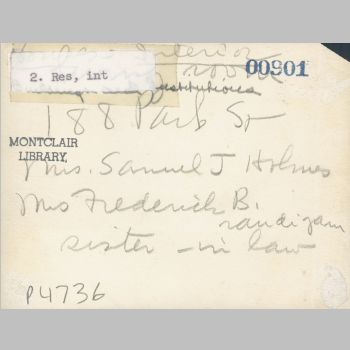 Interior
00901
2. Res, int
188 Park St
MONTCLAIR
LIBRARY,
Mrs. Samuel J Holmes
Mrs Frederick B.
sister-in law
P4736